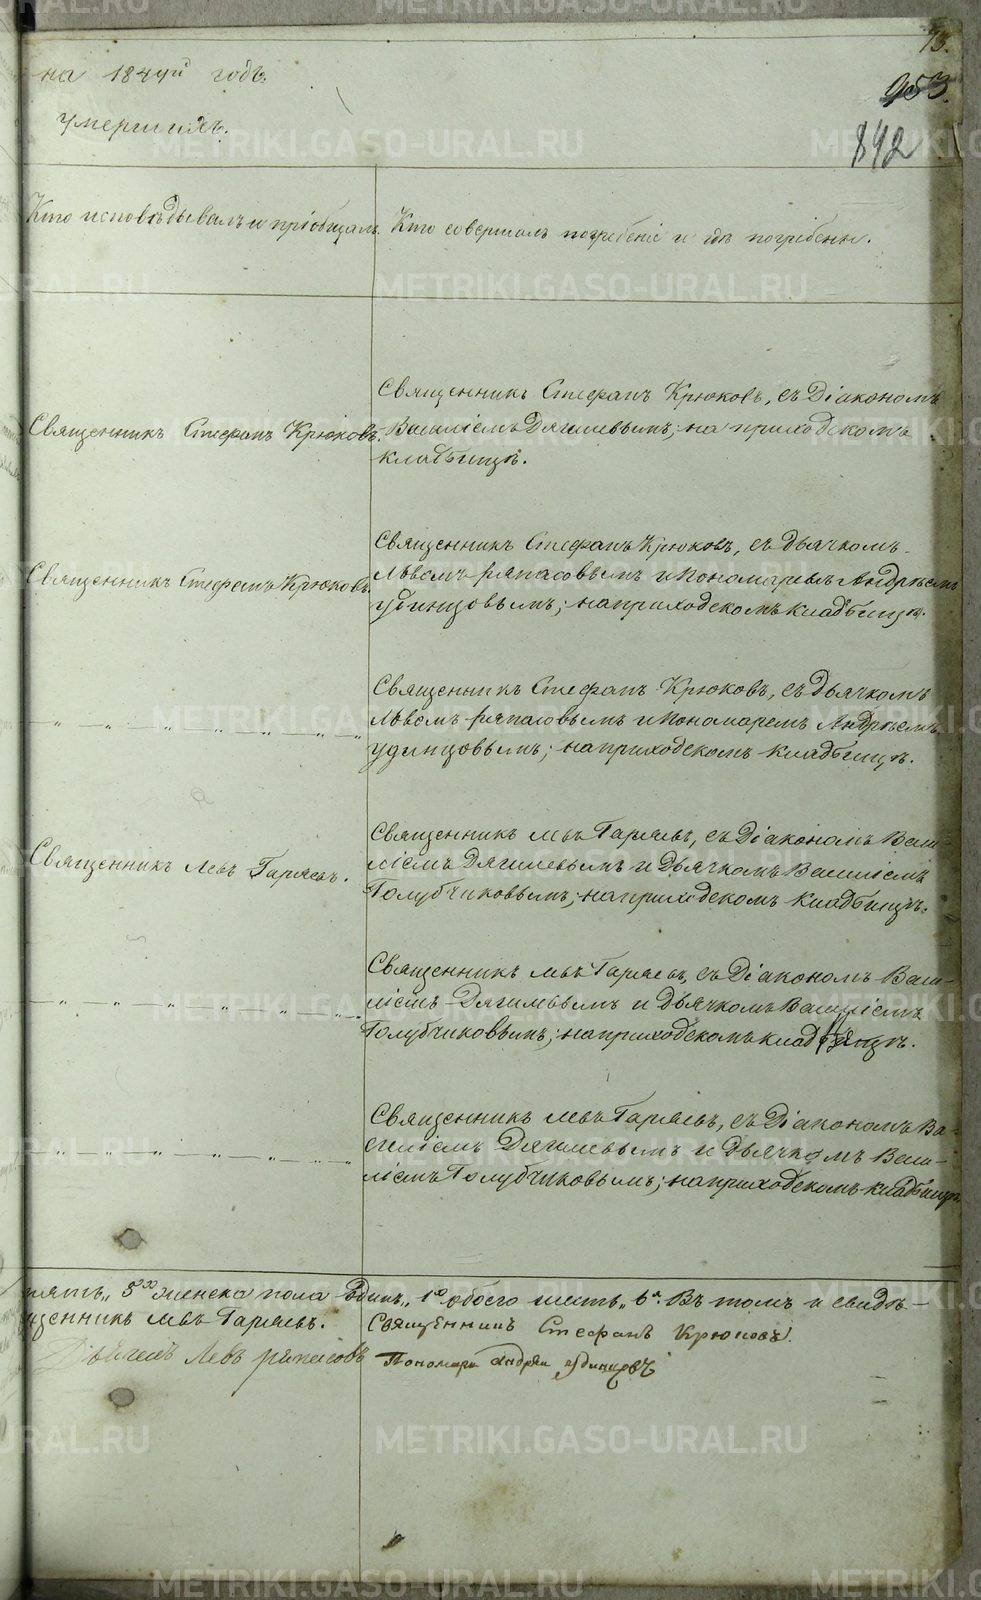 73.
на 184 й годъ.
953.
умершихъ.
842
Кто исповѣдывалъ и пріобщалъ.
Кто совершалъ погребеніе и гдѣ погребены.
Священникъ Стефанъ Крюковъ, съ Діакономъ
Священникъ Стефанъ Крюковъ.
Василіемъ Дягилевымъ; на приходскомъ
кладбищѣ.
Священникъ Стефанъ Крюковъ, съ дьячкомъ
Священникъ Стефанъ Крюковъ.
Львомъ и Пономаремъ Андрѣемъ
Удинцовымъ; на приходскомъ кладбищѣ.
Священникъ Стефанъ Крюковъ, съ Дьячкомъ
— „ — „ — „ — „ — „ —
Львомъ и Пономаремъ Андрѣемъ
Удинцовымъ; на приходскомъ кладбищѣ.
Священникъ Левъ Гаряевъ, съ Діакономъ Васи-
Священникъ Левъ Гаряевъ.
ліемъ Дягилевымъ и Дьячкомъ Василіемъ
Голубчиковымъ; на приходскомъ кладбищѣ.
Священникъ Левъ Гаряевъ, съ Діакономъ Васи-
— „ — „ — „ — „ — „ —
ліемъ Дягилевымъ и дьячкомъ Василіемъ
Голубчиковымъ; на приходскомъ кладбищѣ.
Священникъ Левъ Гаряевъ, съ Діакономъ Ва-
— „ — „ — „ — „ — „ —
силіемъ Дягилевымъ и Дьячкомъ Васи-
ліемъ Голубчиковымъ; на приходскомъ кладбищѣ
пять „ 5ъ женска пола одинъ „ 1ъ обоего шесть „ 6ъ. Въ томъ и свидѣ-
щенникъ Левъ Гаряевъ.
Священникъ Стефанъ Крюковъ.
Дьячекъ Левъ
Пономарь Андрей Удинцовъ
METRIKI.GASO-URAL.RU